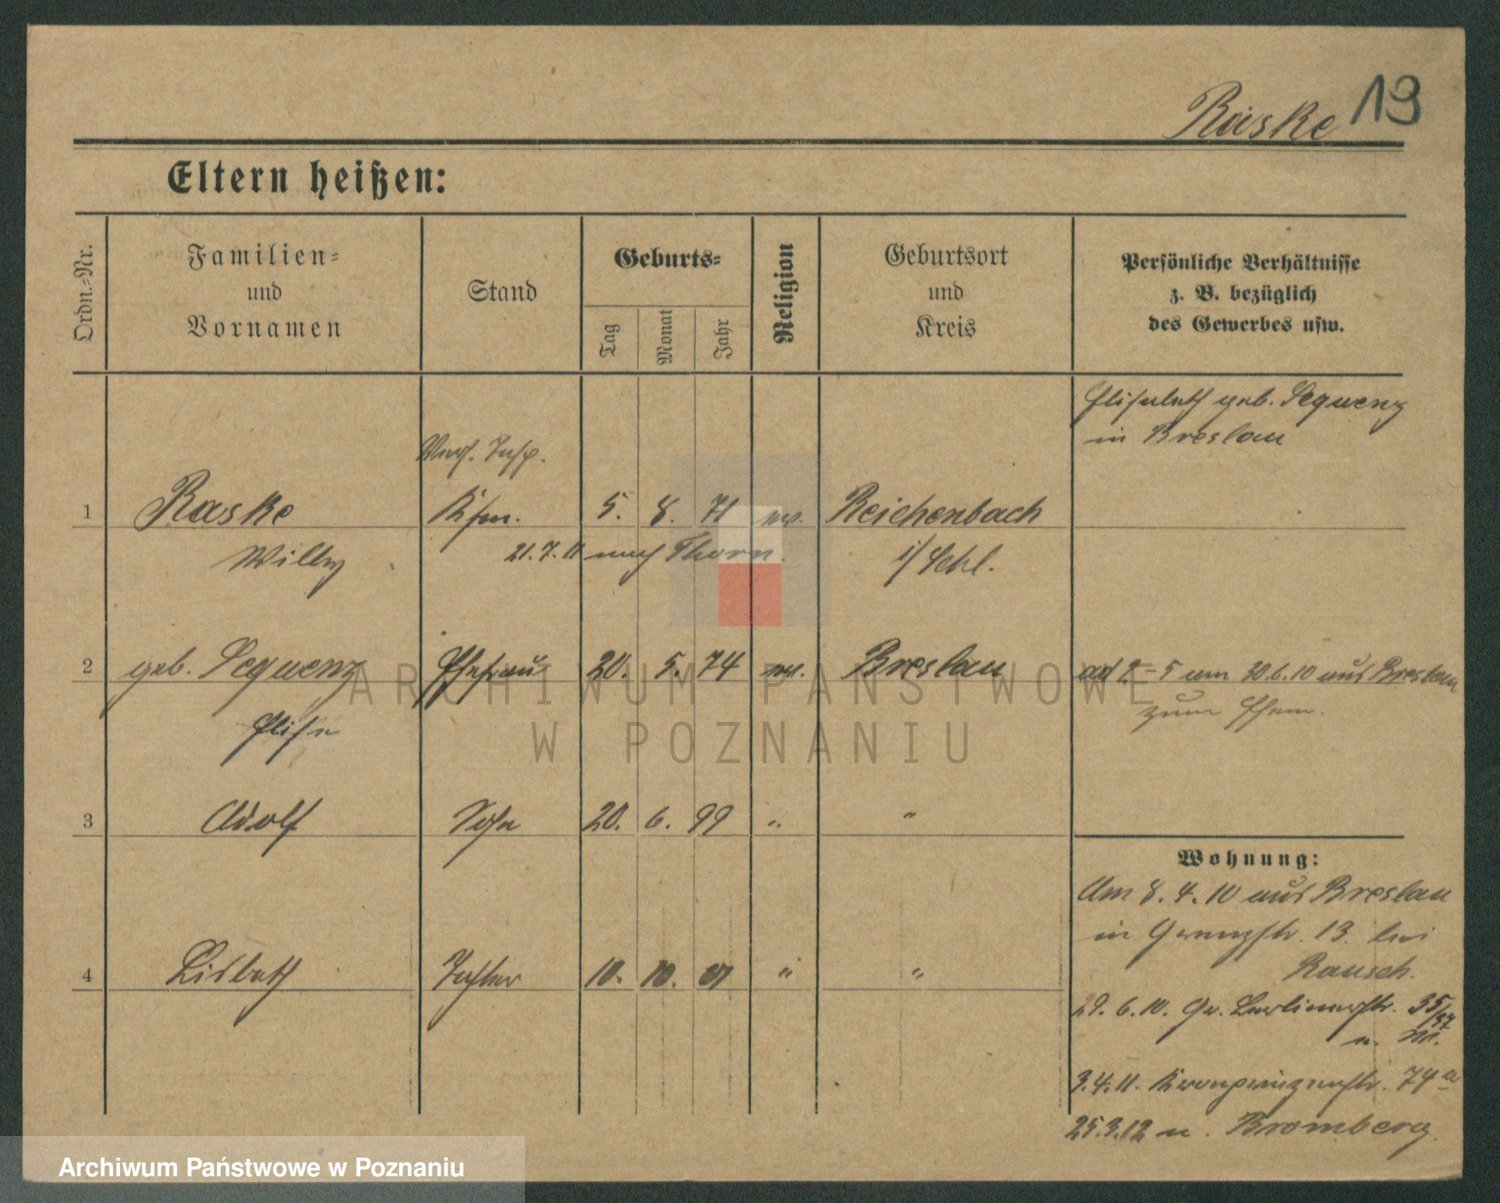 Raske 19
Eltern heißen:
Ordn.-Nr.
Familien-
und
Vornamen
Stand
Geburts-
Tag
Monat
Jahr
Religion
Geburtsort
und
Kreis
Persönliche Verhältnisse
z. B. bezüglich
des Gewerbes usw.
Elisabeth geb. Sequenz
in Breslau
Insp.
1 Raske Kfm. 5. 8. 71 ev. Reichenbach
Willy 21.7.11 nach Thorn. i/Schl.
2 geb. Sequenz Ehefrau 20. 5. 74 ev. Breslau
Elise
ad 2-5 am 30.6.10 aus Breslau
zum Ehem.
3 Adolf Sohn 20. 6. 99 " "
4 Lisbeth Tochter 10. 10. 01 " "
Wohnung:
Am 8.4.10 aus Breslau
in Grenzstr. 13. bei
Rausch.
29.6.10. Gr. Berlinerstr. 35/37
n. M.
3.4.11. Kronprinzenstr. 74a
25.3.12 n. Bromberg.
ARCHIWUM PAŃSTWOWE
W POZNANIU
Archiwum Państwowe w Poznaniu